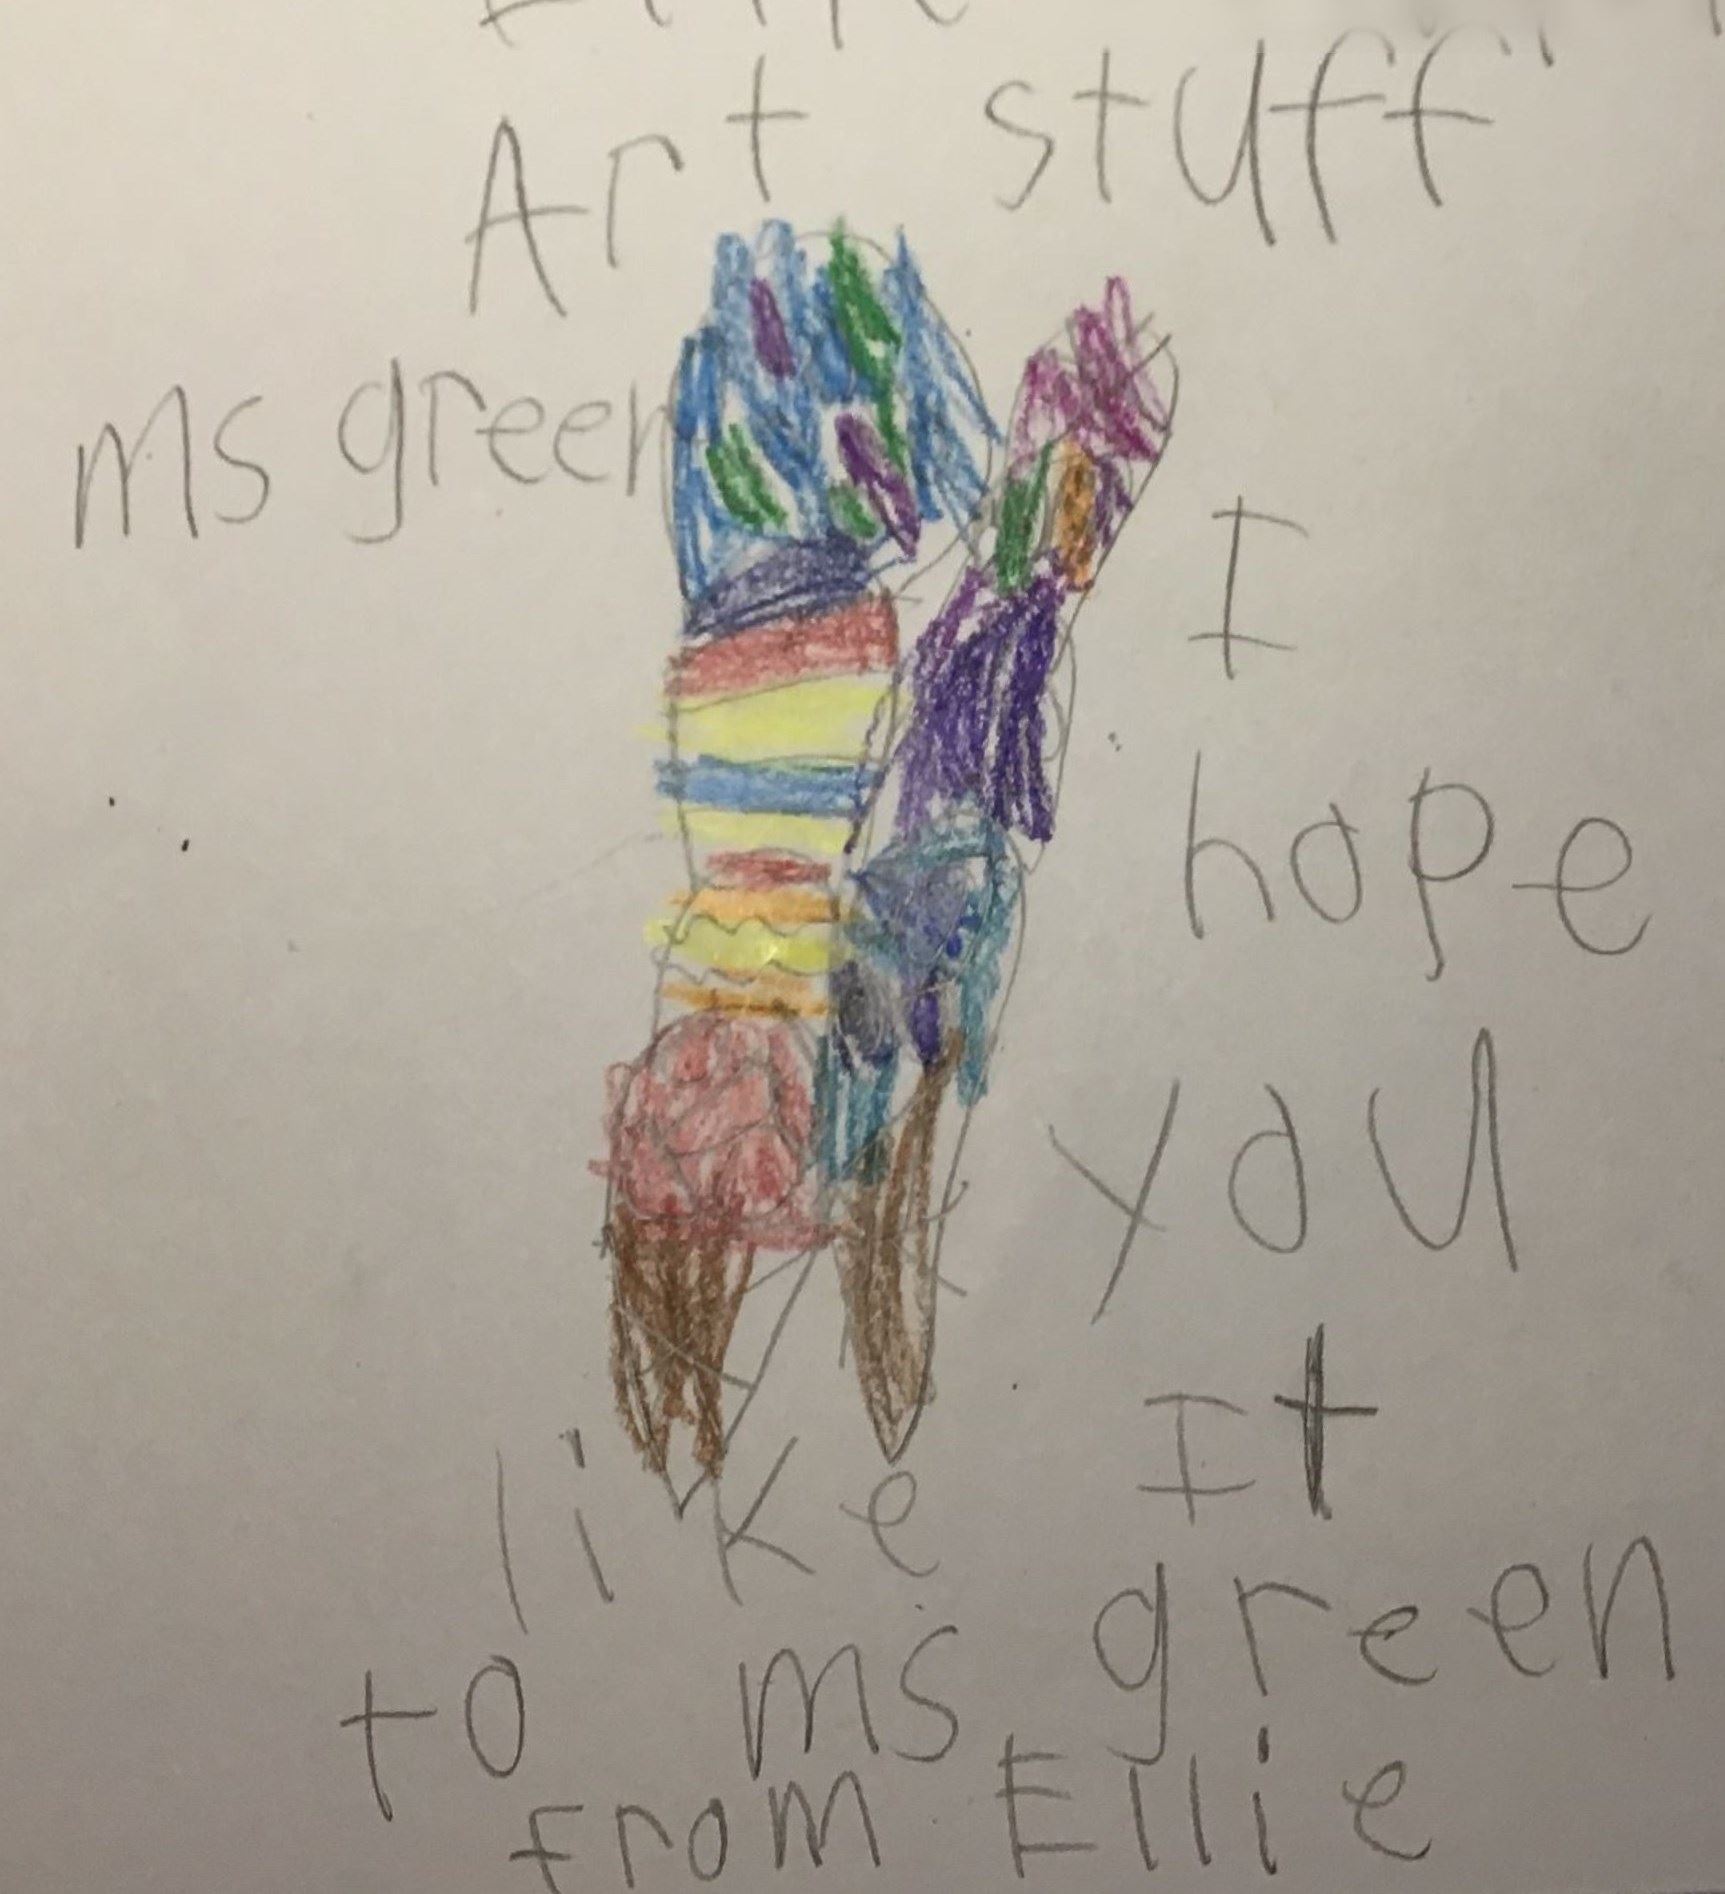 Art stuff
ms green
I
hope
you
It
like
to ms green
from Ellie